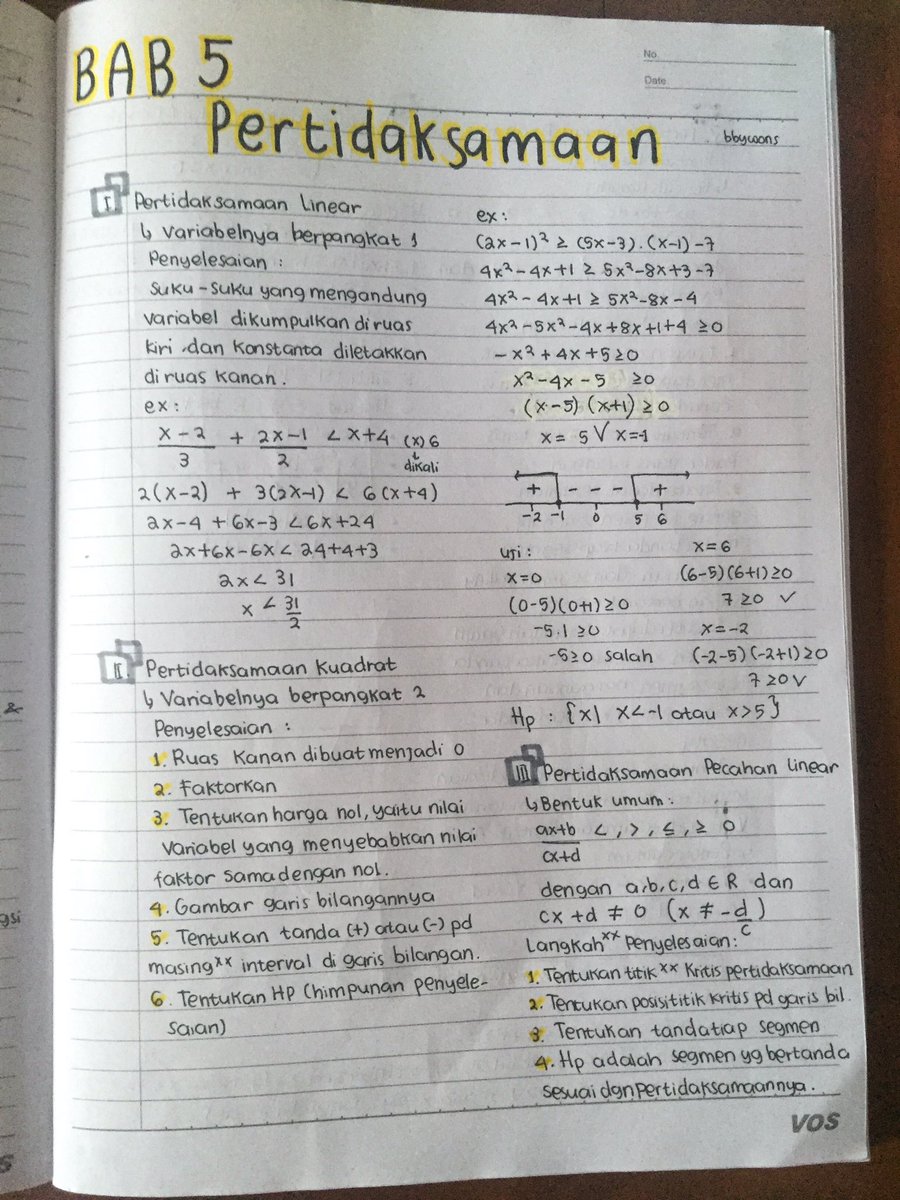 BAB 5
Pertidaksamaan
No.
Date
bbywons
I Pertidaksamaan linear
↳ variabelnya berpangkat 1
Penyelesaian :
suku-suku yang mengandung
variabel dikumpulkan diruas
kiri dan konstanta diletakkan
diruas kanan.
ex:
x-2/3 + 2x-1/2 < x+4 (x) 6
↓
dikali
2(x-2) + 3(2x-1) < 6(x+4)
2x-4 + 6x-3 < 6x+24
2x+6x-6x < 24+4+3
2x < 31
x < 31/2
II. Pertidaksamaan Kuadrat
↳ Variabelnya berpangkat 2
Penyelesaian :
1. Ruas Kanan dibuat menjadi 0
2. Faktorkan
3. Tentukan harga nol, yaitu nilai
variabel yang menyebabkan nilai
faktor sama dengan nol.
4. Gambar garis bilangannya
5. Tentukan tanda (+) atau (-) pd
masing×× interval di garis bilangan.
6. Tentukan HP (himpunan penyele-
saian)
ex:
(2x-1)² ≥ (5x-3).(x-1)-7
4x²-4x+1 ≥ 5x²-8x+3-7
4x²-4x+1 ≥ 5x²-8x-4
4x²-5x²-4x+8x+1+4 ≥0
-x²+4x+5≥0
x²-4x-5 ≥0
(x-5) (x+1) ≥ 0
x= 5 V x=-1
+ - - - +
-2 -1 0 5 6
uji:
x=0
(0-5)(0+1) ≥ 0
-5.1 ≥0
-5≥0 salah
x=6
(6-5)(6+1)≥0
7 ≥0 ✓
x=-2
(-2-5)(-2+1)≥0
7 ≥0 ✓
Hp : {x| x<-1 atau x>5}
III Pertidaksamaan Pecahan linear
↳ Bentuk umum :
ax+b/cx+d <, >, ≤, ≥ 0
dengan a,b,c,d ∈ R dan
cx+d ≠ 0 (x ≠ -d/c)
Langkah×× Penyelesaian:
1. Tentukan titik×× Kritis pertidaksamaan
2. Tentukan posisi titik kritis pd garis bil.
3. Tentukan tanda tiap segmen
4. Hp adalah segmen yg bertanda
sesuai dgn pertidaksamaannya.
VOS
&
gsi
s